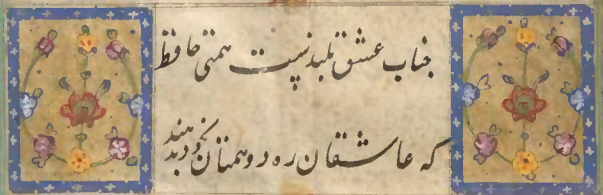 جناب عشق بلندست همتی حافظ
که عاشقان ره دو همتان بخود ندهند